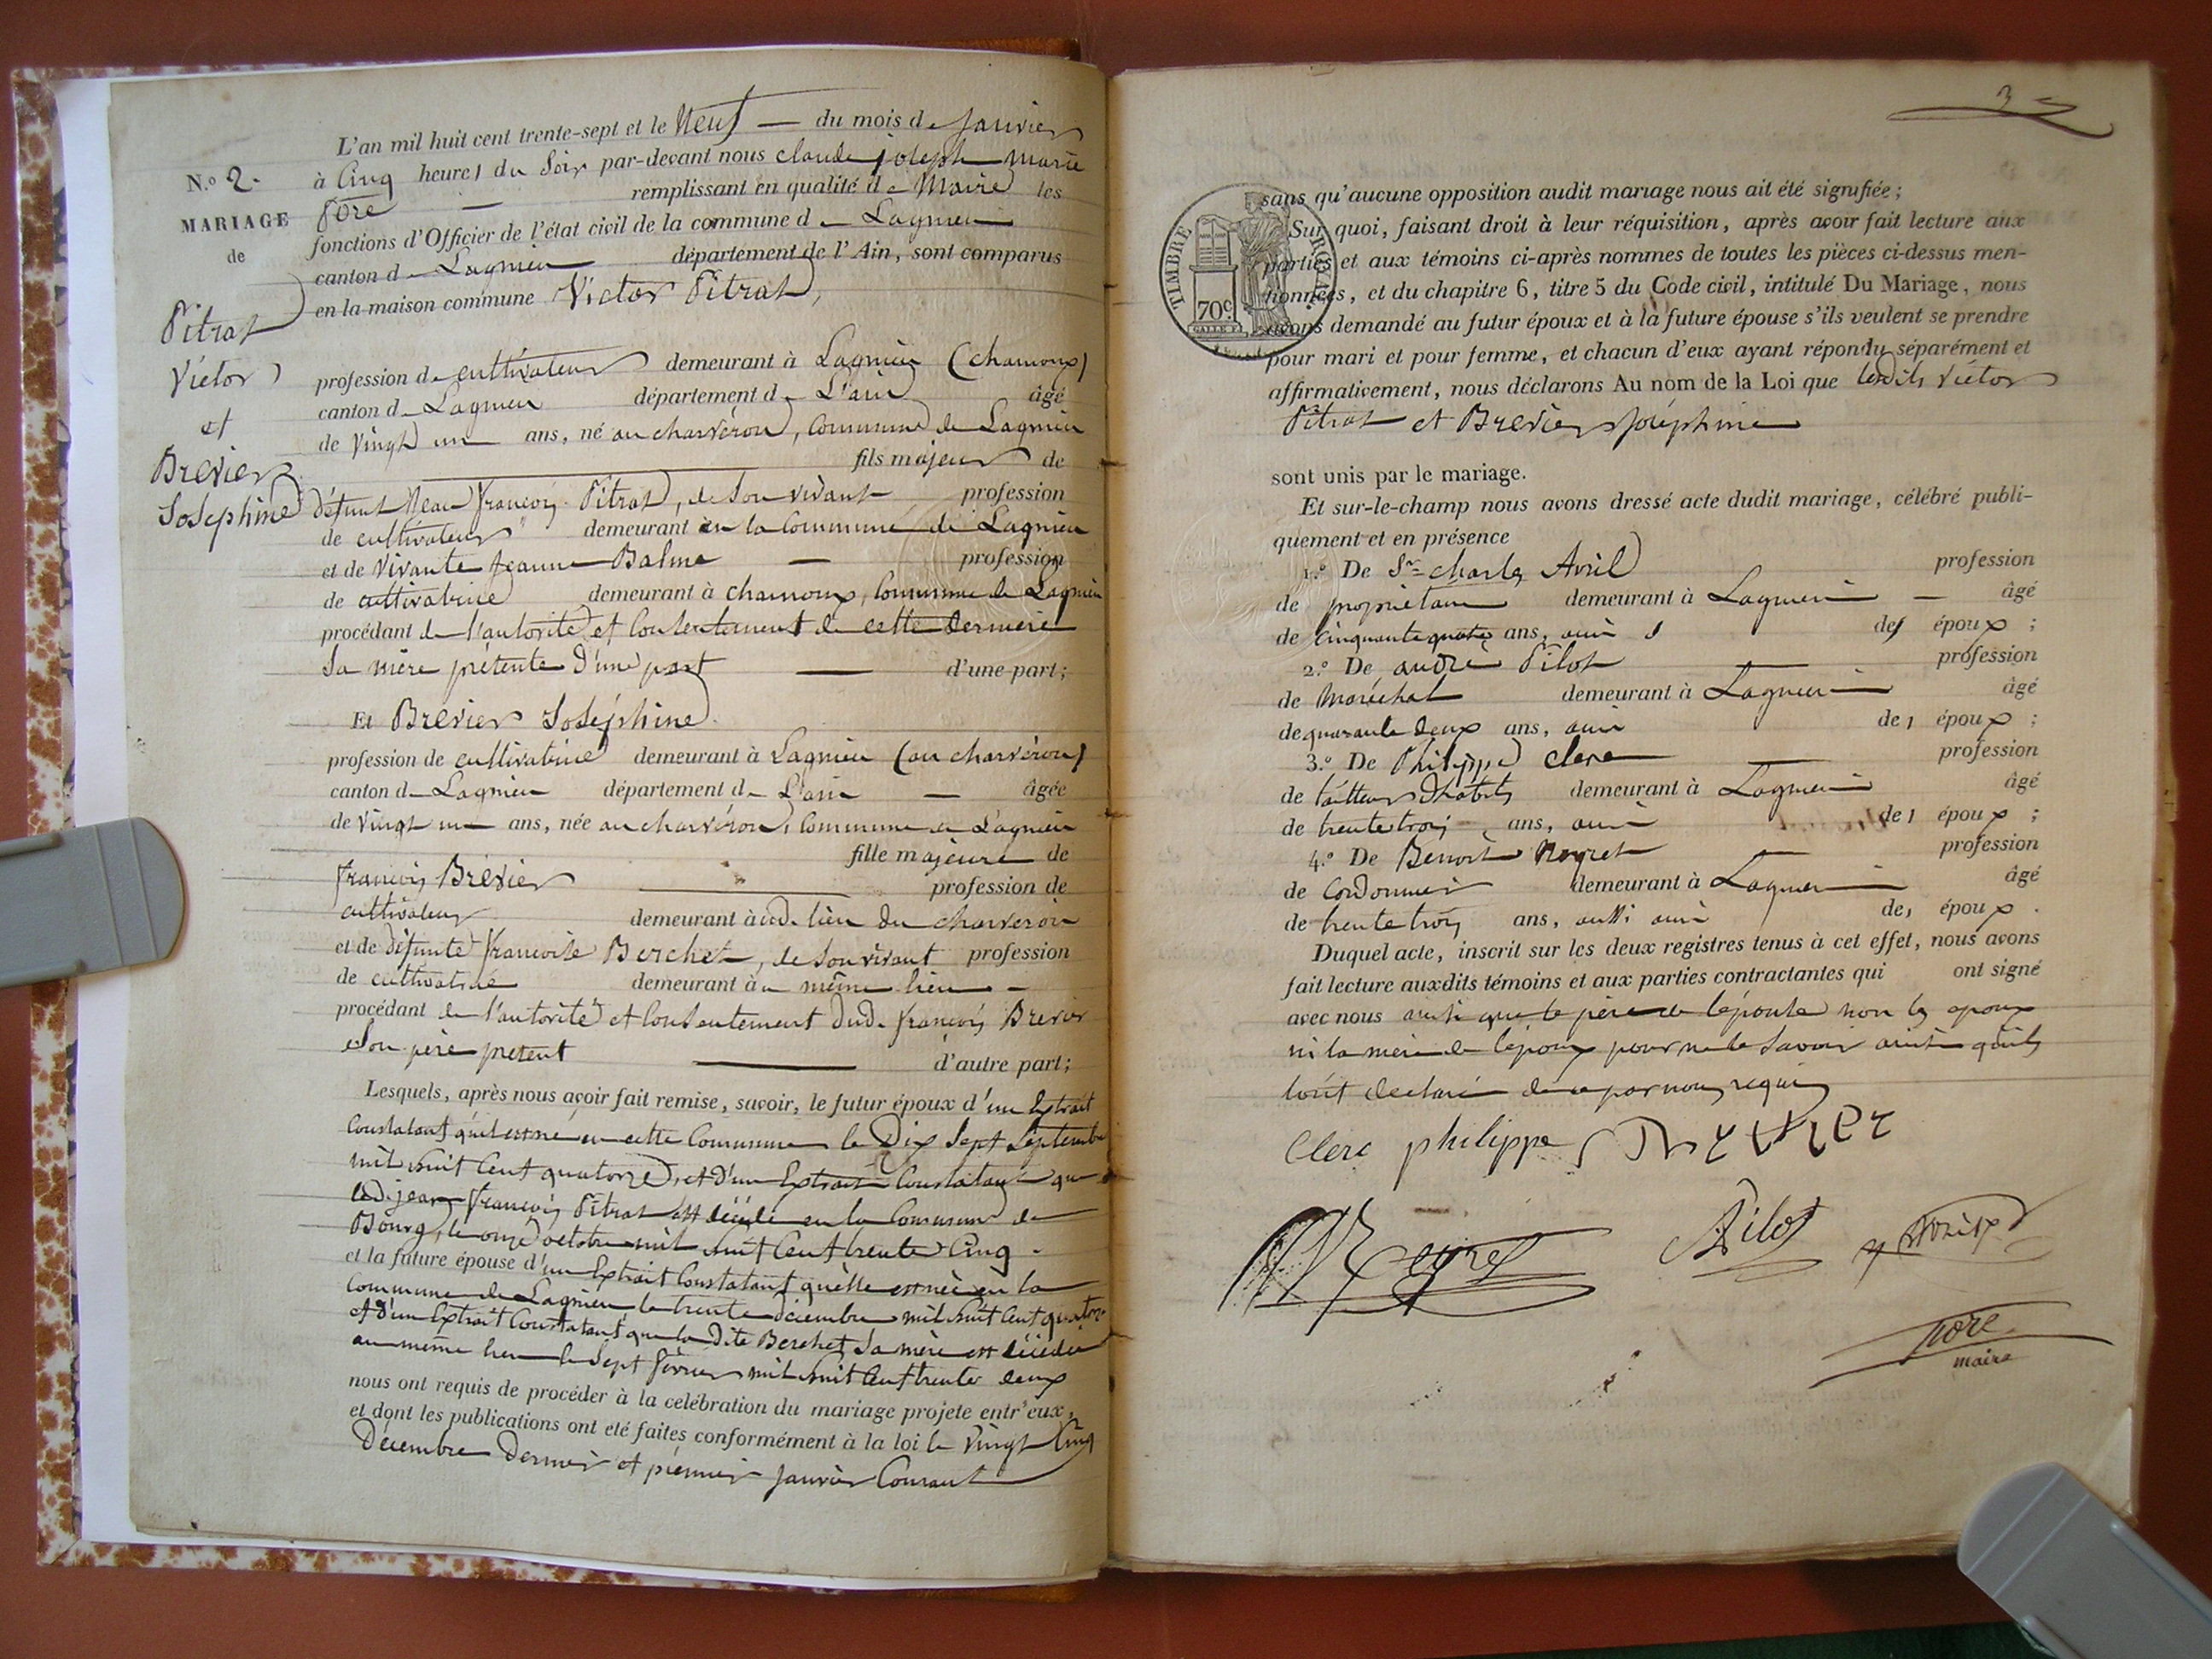 L'an mil huit cent trente-sept et le Neuf — du mois de Janvier
N.o 2.
à Cinq heures du Soir par-devant nous claude joseph marie
fore — remplissant en qualité de Maire les
MARIAGE
fonctions d'Officier de l'état civil de la commune de Lagnieu
de
canton de Lagnieu département de l'Ain, sont comparus
en la maison commune Victor Pitrat,
Pitrat
Victor
et
Brevier
Josephine
profession de cultivateur demeurant à Lagnieu (chamoux)
canton de Lagnieu département de L'ain âgé
de vingt un ans, né au charvéron, commune de Lagnieu
fils majeur de
défunt Jean françois Pitrat, de son vivant profession
de cultivateur demeurant en la commune de Lagnieu
et de vivante Jeanne Balme — profession
de cultivatrice demeurant à chamoux, commune de Lagnieu
procédant de l'autorité et consentement de cette dernière
sa mère présente d'une part — d'une part;
Et Brevier Joséphine
profession de cultivatrice demeurant à Lagnieu (au charvéron)
canton de Lagnieu département de L'ain — âgée
de vingt un ans, née au charvéron, commune de Lagnieu
fille majeure de
françois Brevier profession de
cultivateur demeurant à ud. lieu du charveron
et de défunte françoise Berchet, de son vivant profession
de cultivatrice demeurant au même lieu —
procédant de l'autorité et consentement dud. françois Brevier
son père présent — d'autre part;
Lesquels, après nous avoir fait remise, savoir, le futur époux d'un Extrait
constatant qu'il est né en cette Commune le Dix Sept Septembre
mil huit cent quatorze, et d'un Extrait constatant que
led. jean françois Pitrat est décédé en la Commune de
Bourg, le onze octobre mil huit cent trente cinq.
et la future épouse d'un Extrait constatant qu'elle est née en la
commune de Lagnieu le trente décembre mil huit cent quatorze
et d'un Extrait constatant que la dite Berchet sa mère est décédée
au même lieu le sept février mil huit cent trente deux
nous ont requis de procéder à la celébration du mariage projete entr'eux,
et dont les publications ont eté faites conformément à la loi le vingt cinq
Décembre dernier et premier Janvier Courant
3
TIMBRE ROYAL
70c.
sans qu'aucune opposition audit mariage nous ait été signifiée;
Sur quoi, faisant droit à leur réquisition, après avoir fait lecture aux
parties et aux témoins ci-après nommes de toutes les pièces ci-dessus men-
tionnées, et du chapitre 6, titre 5 du Code civil, intitulé Du Mariage, nous
avons demandé au futur époux et à la future épouse s'ils veulent se prendre
pour mari et pour femme, et chacun d'eux ayant répondu séparément et
affirmativement, nous déclarons Au nom de la Loi que lesdits Victor
Pitrat et Brevier Joséphine
sont unis par le mariage.
Et sur-le-champ nous avons dressé acte dudit mariage, célébré publi-
quement et en présence
1.o De Sr charles Avril profession
de propriétaire demeurant à Lagnieu — âgé
de cinquante quatre ans, ami des époux;
2.o De andré Pilot profession
de Maréchal demeurant à Lagnieu âgé
de quarante deux ans, ami des époux;
3.o De Philippe clerc profession
de tailleur d'habits demeurant à Lagnieu âgé
de trente trois ans, ami des époux;
4.o De Benoit Neyret profession
de Cordonnier demeurant à Lagnieu âgé
de trente trois ans, aussi ami des époux.
Duquel acte, inscrit sur les deux registres tenus à cet effet, nous avons
fait lecture auxdits témoins et aux parties contractantes qui ont signé
avec nous ainsi que le père de l'épouse non les époux
ni la mère de l'époux pour ne le savoir ainsi qu'ils
l'ont déclaré de ce par nous requis
Clerc philippe
Neyret Pilot
fore
maire